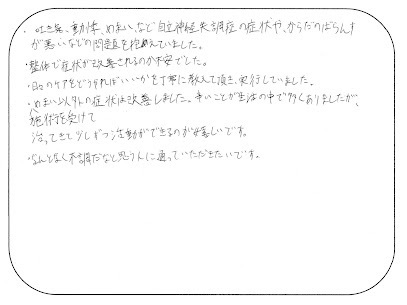 ・吐き気、動悸、めまい、など自立神経失調症の症状や、からだのばらんす
が悪いなどの問題を抱えていました。
・整体で症状が改善されるのか不安でした。
・日々のケアをどうすればいいかを丁寧に教えて頂き、実行していました。
・めまい以外の症状は改善しました。辛いことが生活の中で多くありましたが、
施術を受けて
治ってきて少しずつ活動ができるのが嬉しいです。
・なんとなく不調だなと思う人に通っていただきたいです。